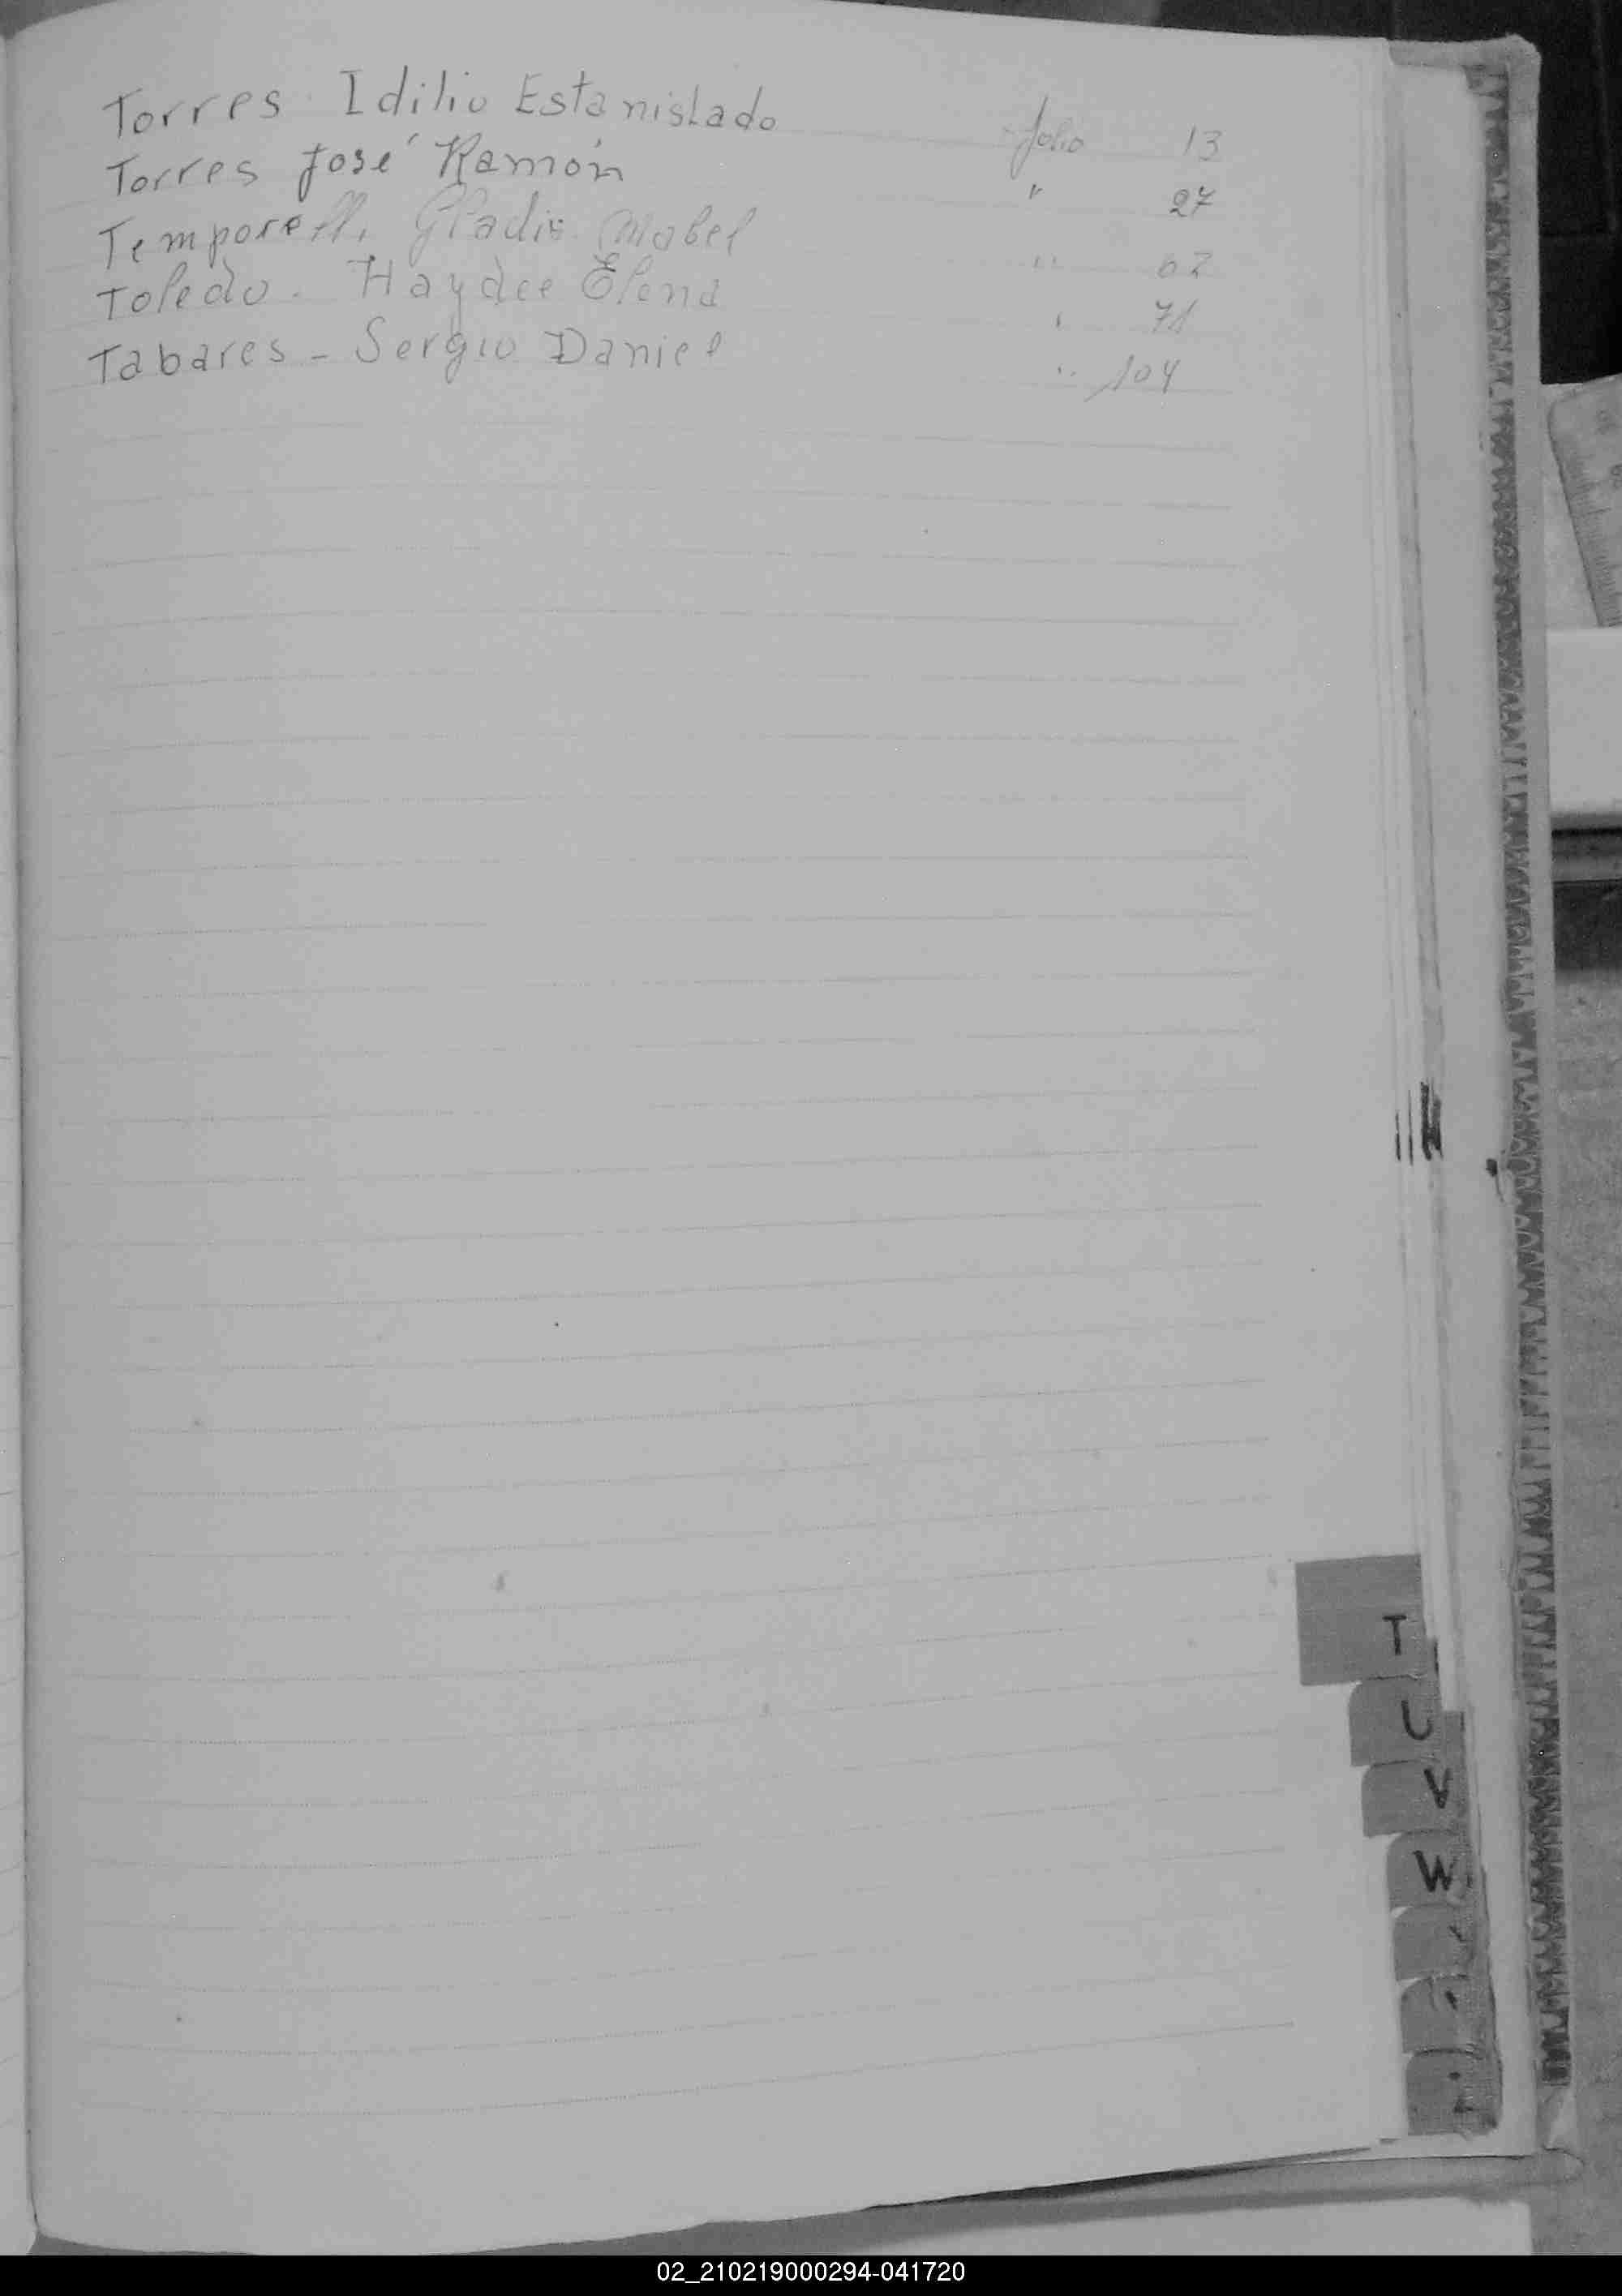 Torres Idilio Estanislado folio 13
Torres José Ramón " 27
Temporelli Gladis Mabel " 62
Toledo - Haydée Elena " 71
Tabares - Sergio Daniel " 104
T
U
V
W
02_210219000294-041720